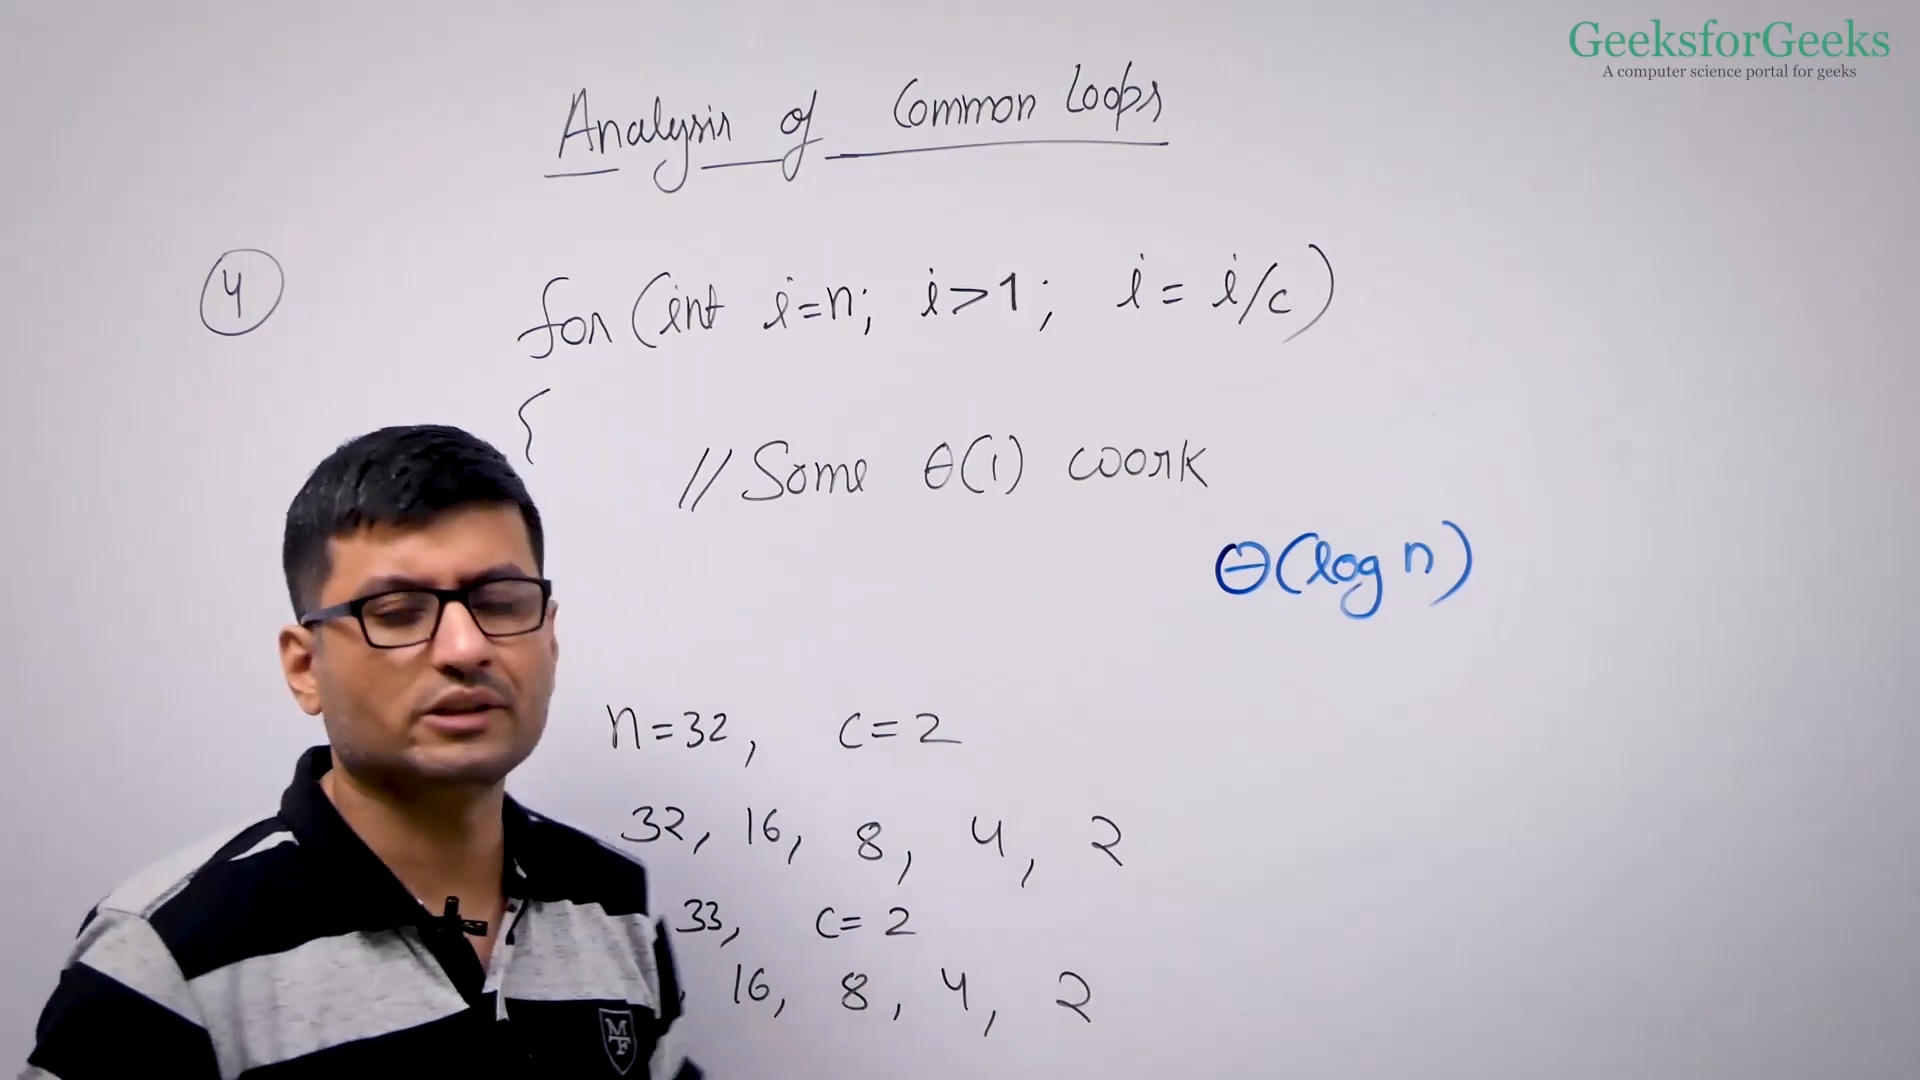 GeeksforGeeks
A computer science portal for geeks
Analysis of Common Loops
4
for (int i=n; i>1; i = i/c)
{
// Some θ(1) work
θ(log n)
n=32, c=2
32, 16, 8, 4, 2
33, c=2
16, 8, 4, 2
MTF